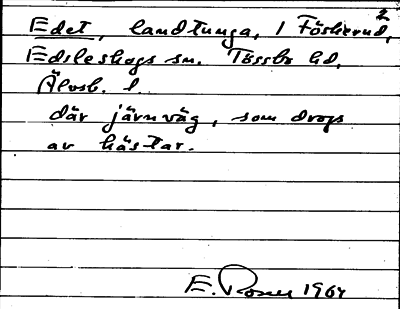 Edet, landtunga, 1 Föskerud 2,
Edsleskogs sn. Tössbo hd,
Älvsb. l.
där järnväg, som drogs
av hästar.
E. Rosen 1964